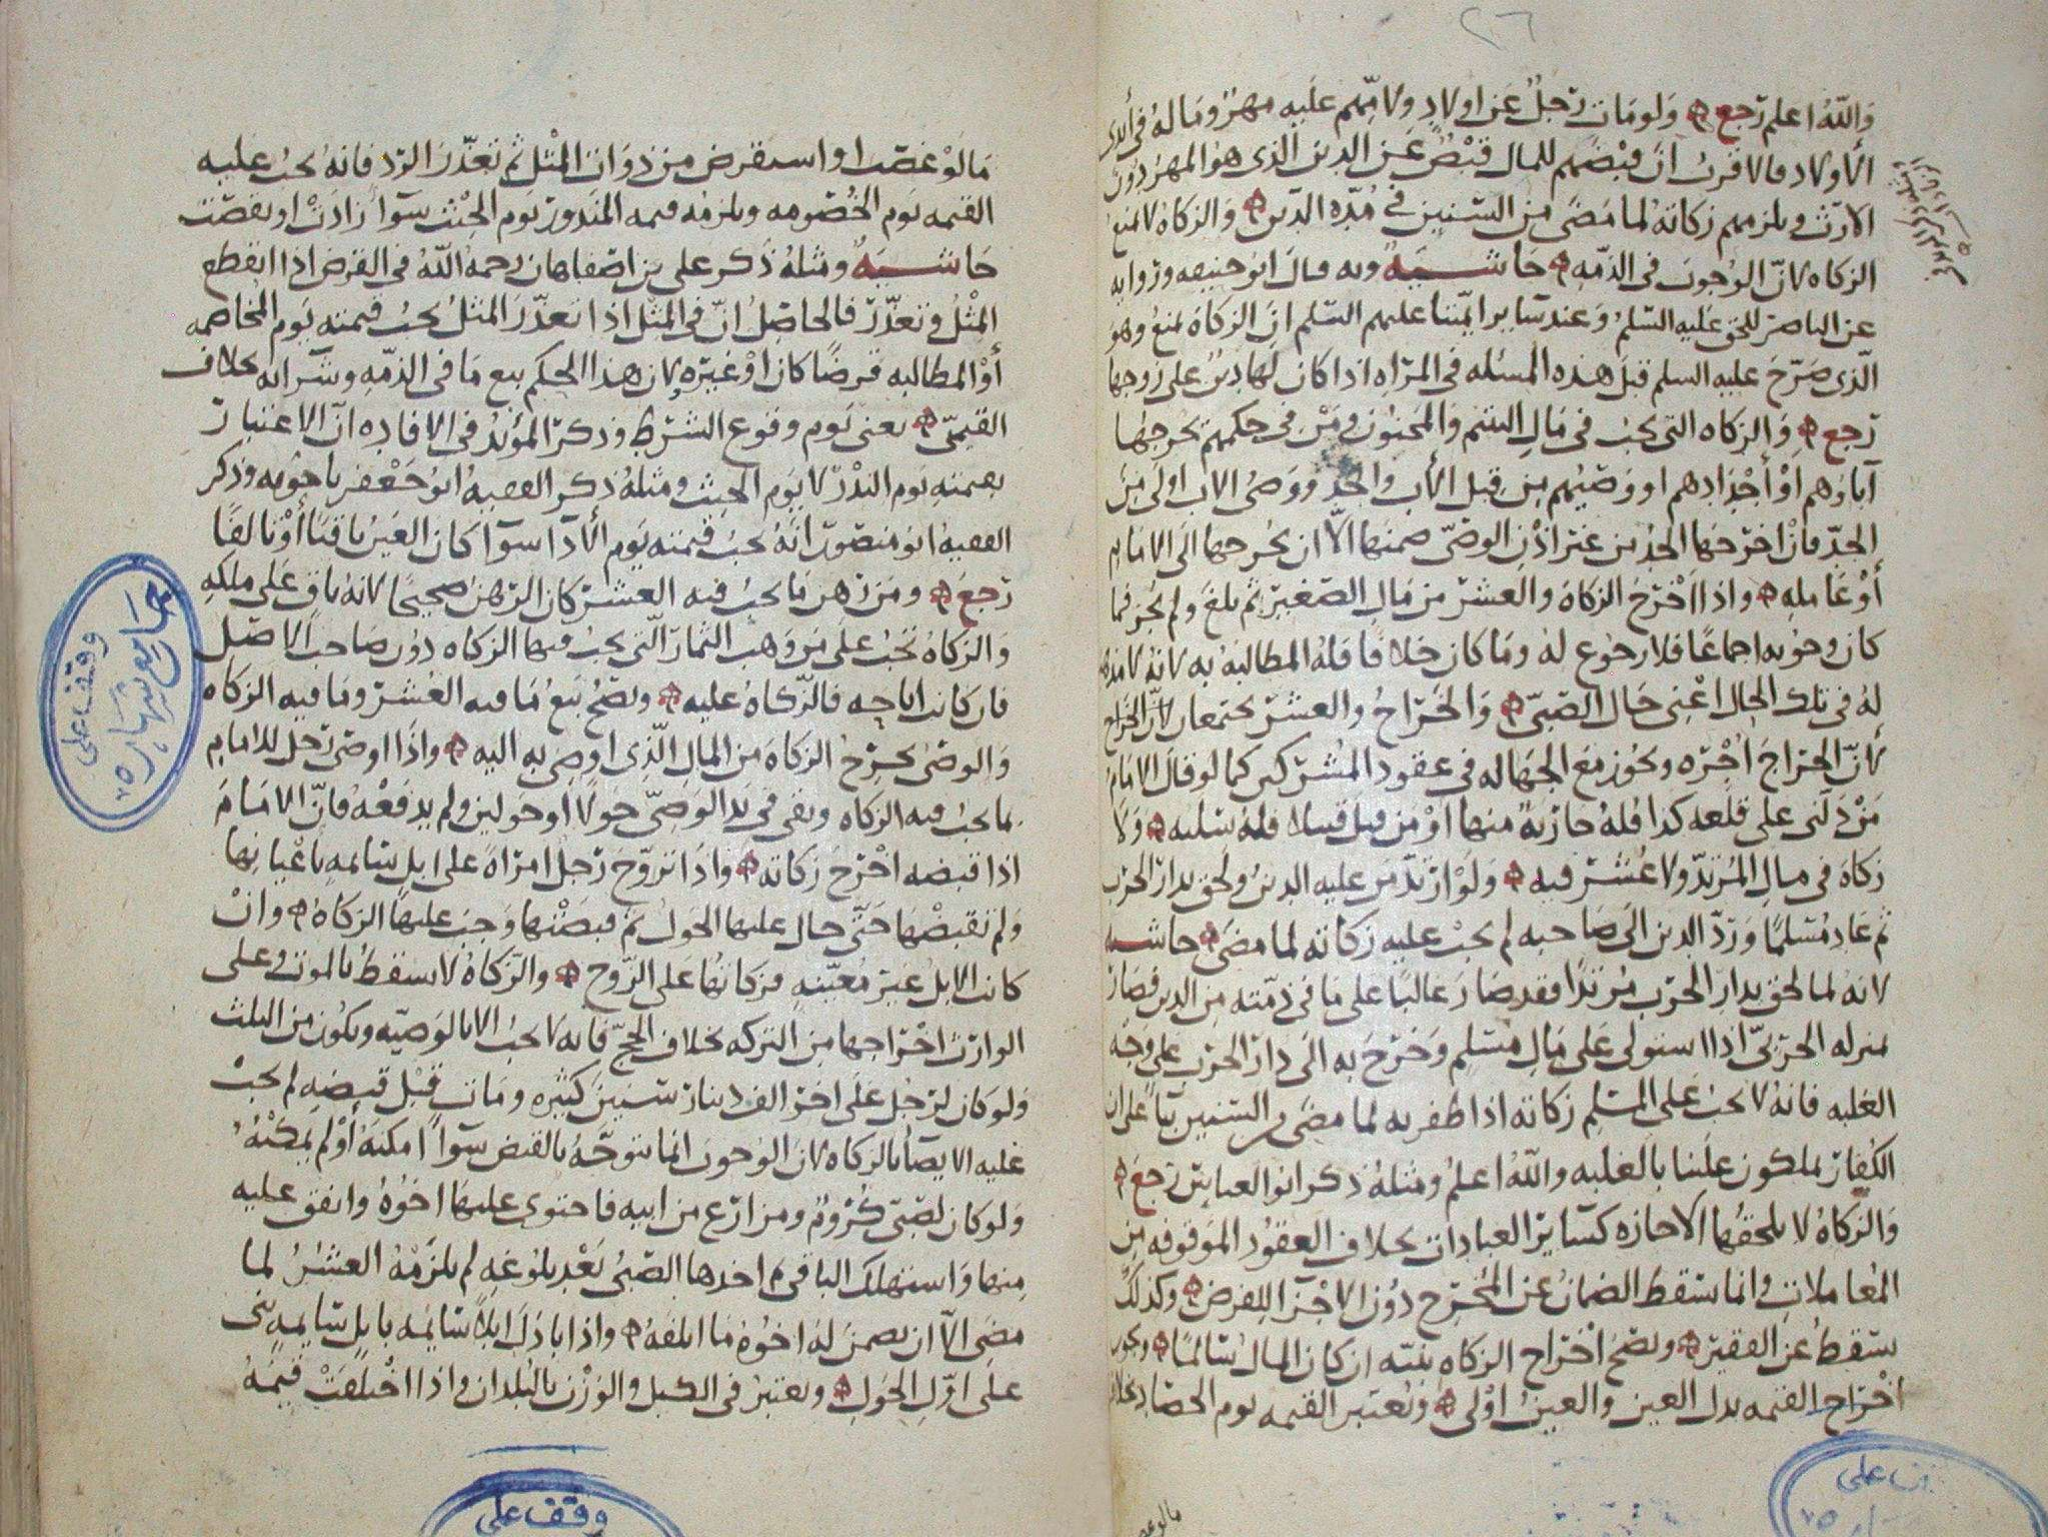 ٢٦
والله اعلم رجع ولو مات رجل عن اولاد ولامهم عليه مهر وماله في أيدي
الأولاد فالاقرب ان قبضهم للمال قبض عن الدين الذي هو المهر دون
الارث ويلزمهم زكاته لما مضى من السنين في مده الدين والزكاة لا تمنع
الزكاه لان الوجوب في الذمه حاشية وبه قال ابو حنيفه وروايه
عن الناصر للحق عليه السلم وعند سائر ائمتنا عليهم السلم ان الزكاة تمنع وهو
الذي صرح عليه السلم قبل هذه المسئله في المراه اذا كان لها دين على زوجها
رجع والزكاه التي تجب في مال اليتيم والمجنون ومن في حكمهم يخرجها
آباؤهم أو أجدادهم او وصيهم من قبل الأب والجد ووصي الاب اولى من
الجد فان اخرجها الجد من غير اذن الوصي ضمنها الا ان يخرجها الى الامام
أو عامله واذا اخرج الزكاة والعشر من مال الصغير ثم بلغ ولم يجز فما
كان وجوبه اجماعا فلا رجوع له وما كان خلافا فله المطالبة به لانه لا مذهب
له في تلك الحال اعني حال الصبي والخراج والعشر يجتمعان لان الخراج
لأن الخراج أجره ويجوز مع الجهاله في عقود المشركين كما لو قال الامام
من دلني على قلعه كذا فله جارية منها او من قتل قتيلا فله سلبه ولا
زكاة في مال المرتد ولا عشر فيه ولو ارتد من عليه الدين ولحق بدار الحرب
ثم عاد مسلما ورد الدين الى صاحبه لم يجب عليه زكاته لما مضى حاشيه
لانه لما لحق بدار الحرب مرتدا فقد صار غالبا على ما في ذمته من الدين فصار
بمنزله الحربي اذا استولى على مال مسلم وخرج به الى دار الحرب على وجه
الغلبه فانه لا تجب على المسلم زكاته اذا ظفر به لما مضى من السنين بناء على ان
الكفار يملكون علينا بالغلبه والله اعلم ومثله ذكر ابو العباس رجع
والزكاة لا يلحقها الاجازه كسائر العبادات بخلاف العقود الموقوفه من
المعاملات وانما يسقط الضمان عن المخرج دون الاجزا للفرض وكذلك
يسقط عن الفقير ويصح اخراج الزكاه بنيته ان كان المال سالما ويجوز
اخراج القيمه بدل العين والعين اولى وتعتبر القيمه يوم الحصاد بخلاف
مالو غصب
ما لو غصب او استقرض من ذوات المثل ثم تعذر الرد فانه يجب عليه
القيمه يوم الخصومه ويلزمه قيمه المنذور يوم الحنث سوآ زادت او نقصت
حاشية ومثله ذكر علي بن اصفاهان رحمه الله في القرض اذا انقطع
المثل وتعذر فالحاصل ان في المثل اذا تعذر المثل يجب قيمته يوم المخاصمه
أو المطالبه قرضا كان او غيره لان هذا الحكم بيع ما في الذمه وشرائه بخلاف
القيمي يعني يوم وقوع الشرط وذكر المؤيد في الافاده ان الاعتبار
بقيمته يوم النذر لا يوم الحنث ومثله ذكر الفقيه ابو جعفر باجويه وذكر
الفقيه ابو منصور انه يجب قيمته يوم الأدآ سوآ كان العين باقيا أو تالفا
رجع ومن رهن ما يجب فيه العشر كان الرهن صحيحا لانه باق على ملكه
والزكاة تجب على من وهب الثمار التي يجب فيها الزكاه دون صاحب الاصل
فان كانت اباحه فالزكاة عليه ويصح بيع ما فيه العشر وما فيه الزكاه
والوصي يخرج الزكاة من المال الذي اوصي به اليه واذا اوصى رجل للامام
بما يجب فيه الزكاه وبقي في يد الوصي حولا او حولين ولم يدفعه فان الامام
اذا قبضه اخرج زكاته واذا تزوج رجل امراة على ابل سائمه باعيانها
ولم تقبضها حتى حال عليها الحول ثم قبضتها وجب عليها الزكاة وان
كانت الابل غير معينه فزكاتها على الزوج والزكاة لا تسقط بالموت وعلى
الوارث اخراجها من التركه بخلاف الحج فانه لا يجب الا بالوصيه ويكون من الثلث
ولو كان لرجل على اخر الف دينار سنين كثيره ومات قبل قبضه لم يجب
عليه الايصآ بالزكاه لان الوجوب انما يتوجه بالقبض سوآ امكنه أو لم يمكنه
ولو كان لصبي كروم ومزارع من ابيه فاحتوى عليها اخوه وانفق عليه
منها واستهلك الباقي ثم اخذها الصبي بعد بلوغه لم يلزمه العشر لما
مضى الا ان يضمن له اخوه ما اتلفه واذا بادل ابلا سائمه بابل سائمه بنى
على اول الحول ويعتبر في الكيل والوزن بالبلدان واذا اختلفت قيمة
وقف على
جامع شهاره
٧٥
وقف على